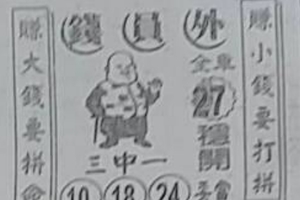 錢員外
賺大錢要拼命
賺小錢要打拼
全車
27
穩開
三中一
10 18 24